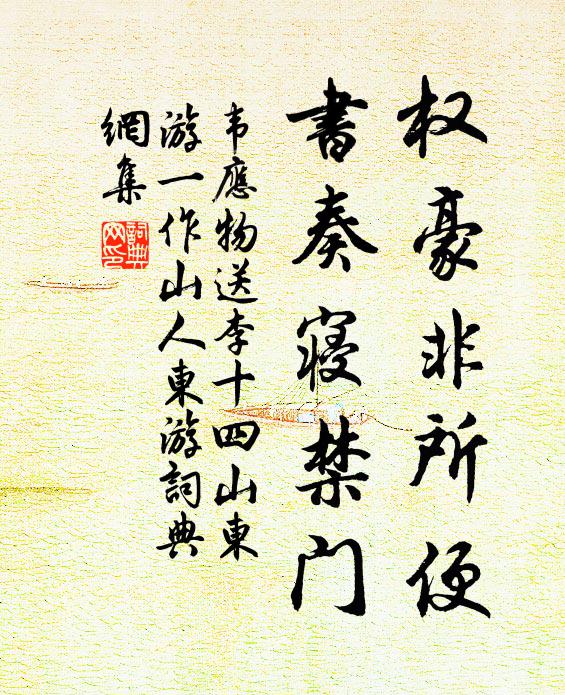 权豪非所便
書奏寝禁门
韦應物送李十四山東
游一作山人東游詞典
網集
詞典
网印